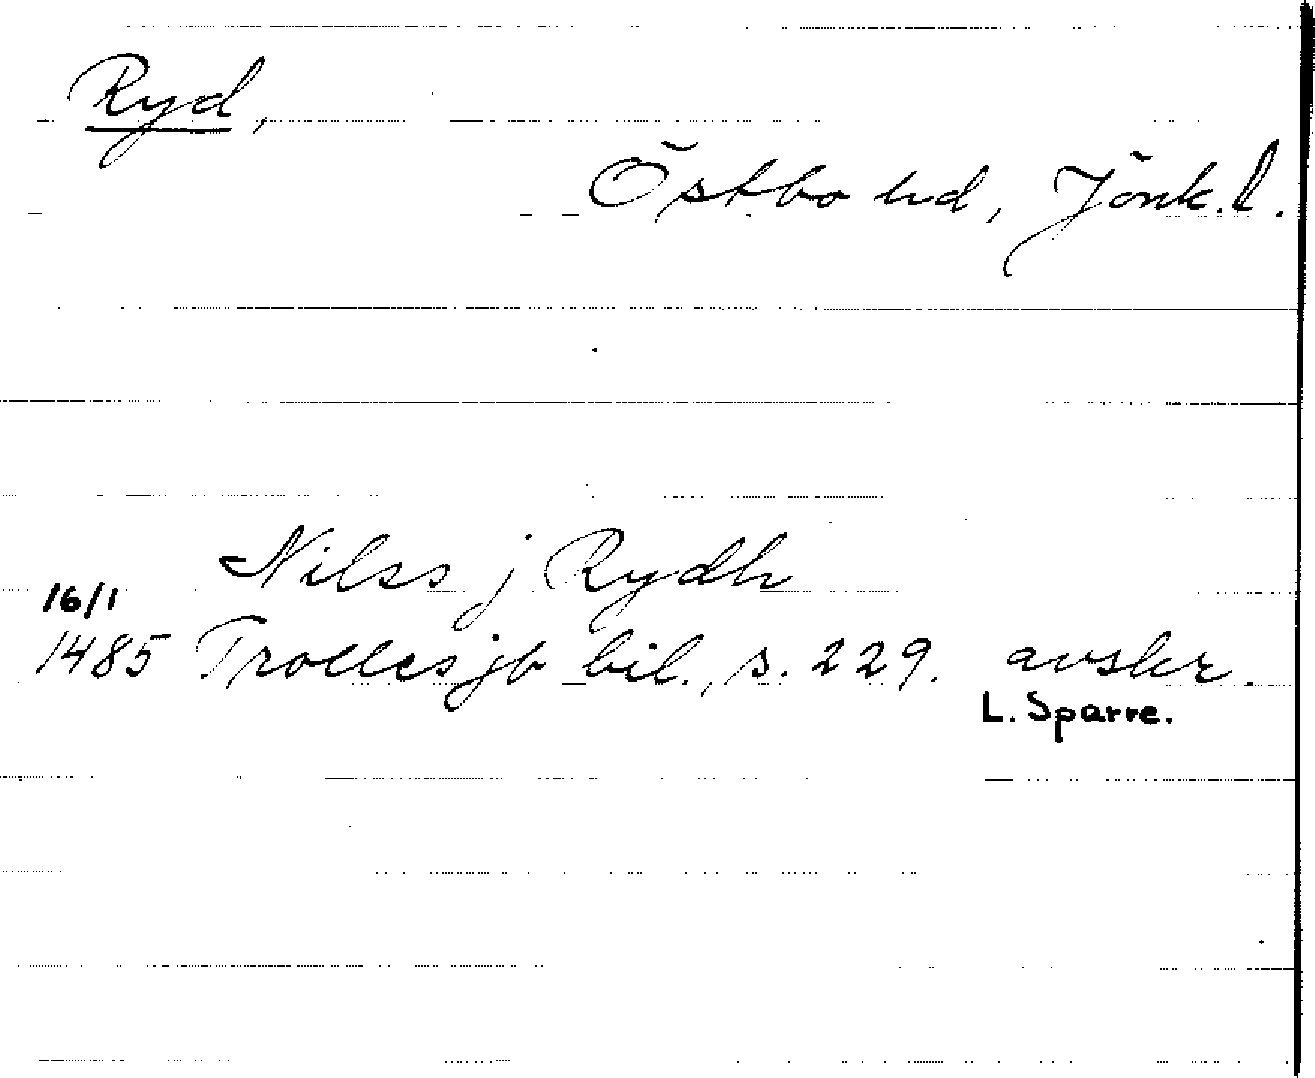 Ryd,
Östbo hd, Jönk.l.
Nilss j Rydh
16/1
1485 Trolles jb bil., s. 229. avskr.
L. Sparre.